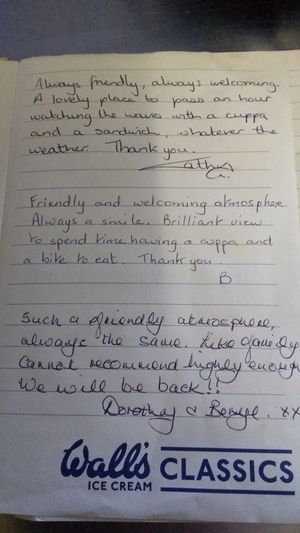 Always friendly, always welcoming.
A lovely place to pass an hour
watching the waves with a cuppa
and a sandwich, whatever the
weather. Thank you.
Friendly and welcoming atmosphere.
Always a smile. Brilliant view
to spend time having a cuppa and
a bite to eat. Thank you.
B.
Such a friendly atmosphere,
always the same. Like family
Cannot recommend highly enough
We will be back!!
Dorothy & xx
Wall's CLASSICS
ICE CREAM